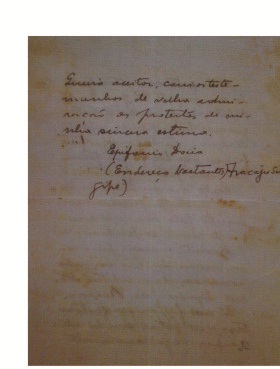 Queira aceitar, com os teste-
munhos de velha admi-
ração os protestos de mi-
nha sincera estima.
Epifanio Doria
(Endereço bastante) Aracaju
gipe)